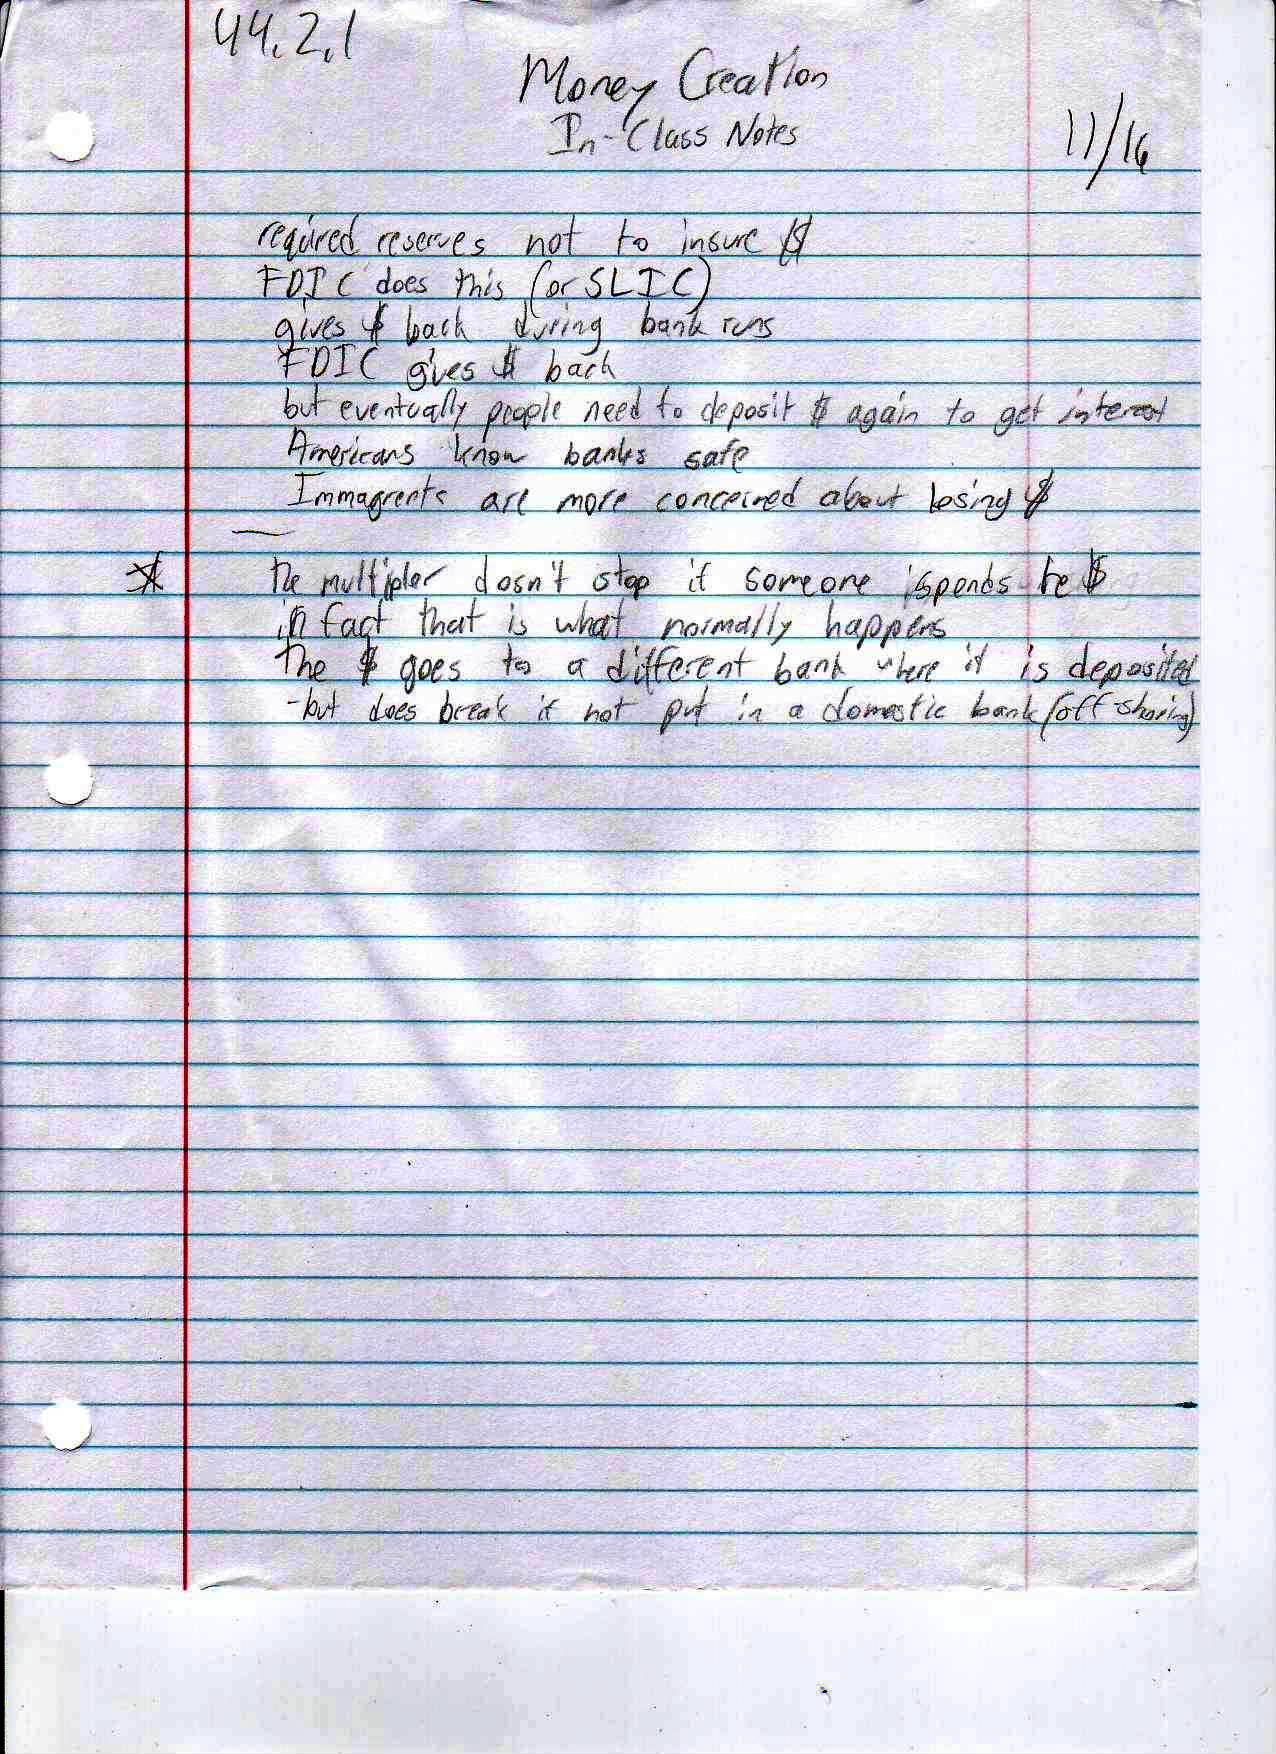 44.2.1
Money Creation
In-Class Notes
11/16
required reserves not to insure $
FDIC does this (or SLIC)
gives $ back during bank runs
FDIC gives $ back
but eventually people need to deposit $ again to get interest
Americans know banks safe
Immagrents are more concerned about losing $
* the multipler dosn't stop if someone spends the $
in fact that is what normally happens
the $ goes to a different bank where it is deposited
-but does break if not put in a domestic bank (off-shoring)